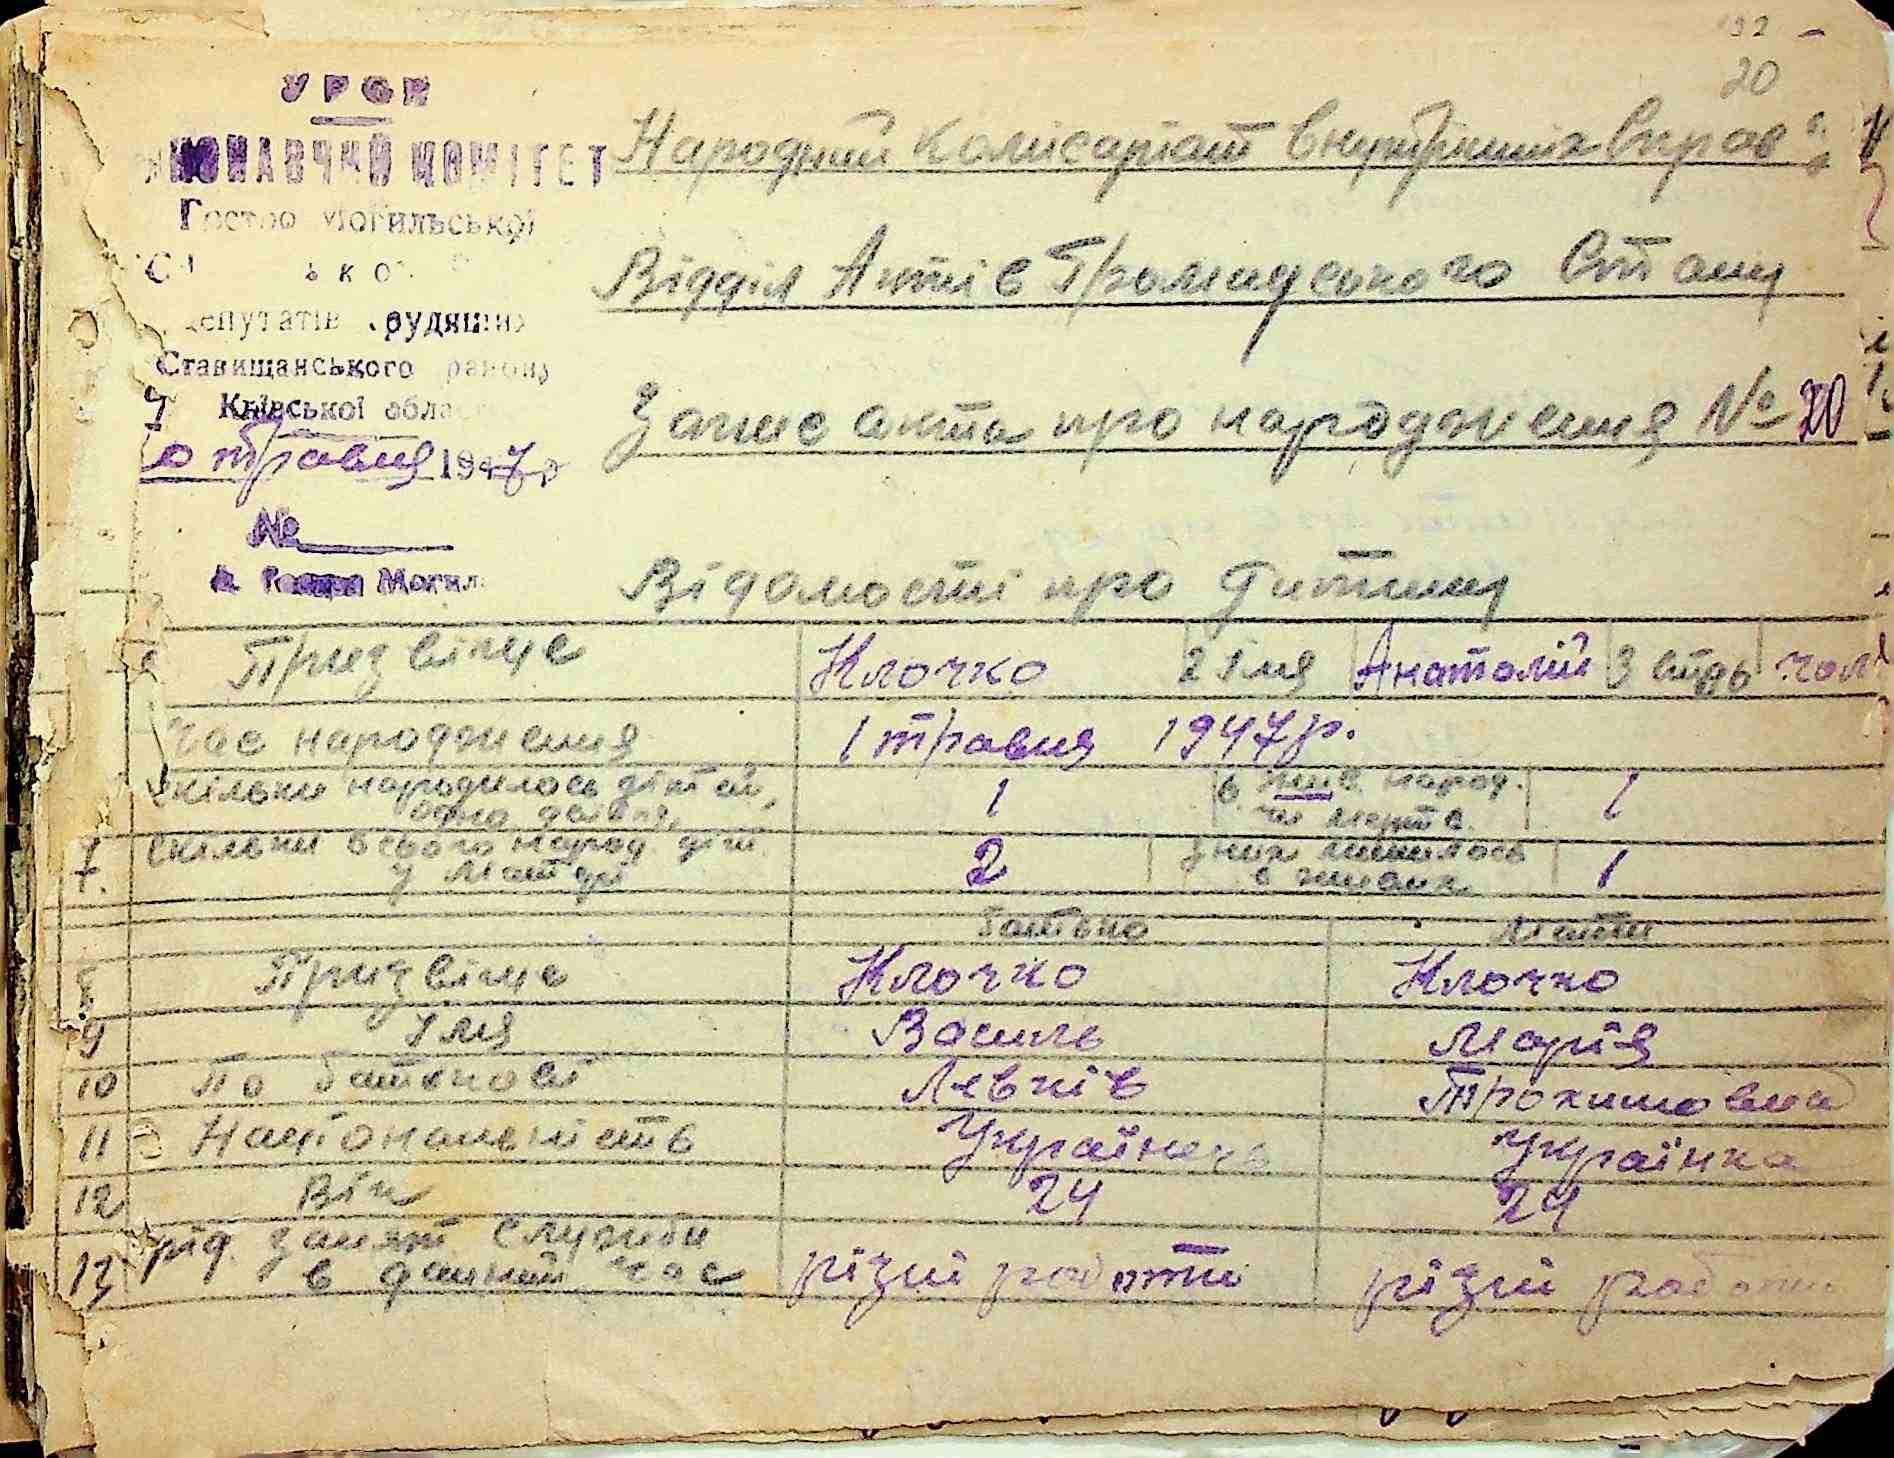 32
20
УРСР
КОНАВЧИЙ КОМІТЕТ
Гостро Могильської
депутатів трудящих
Ставищанського району
Київської обла
травня 1947 р
№
Могил
Народний Комісаріат Внутрішніх Справ
Відділ Актів Громадського Стану
Запис акта про народження № 20
Відомості про дитину
Призвіще Клочко 2 Імя Анатолій 3 стать чол
Час народження 1 травня 1947 р.
скільки народилось дітей, 1 в жив. народ. 1
одно двійня, чи мертв.
7 скільки всього народ. діт. 2 з них лишилось 1
у матері в живих
батько мати
8 Призвіще Клочко Клочко
9 Імя Василь Марія
10 По батькові Левків Трохимовна
11 Національність Українець Українка
12 Вік 24 24
13 рід. занят. служби різні работи різні работи
в даний час